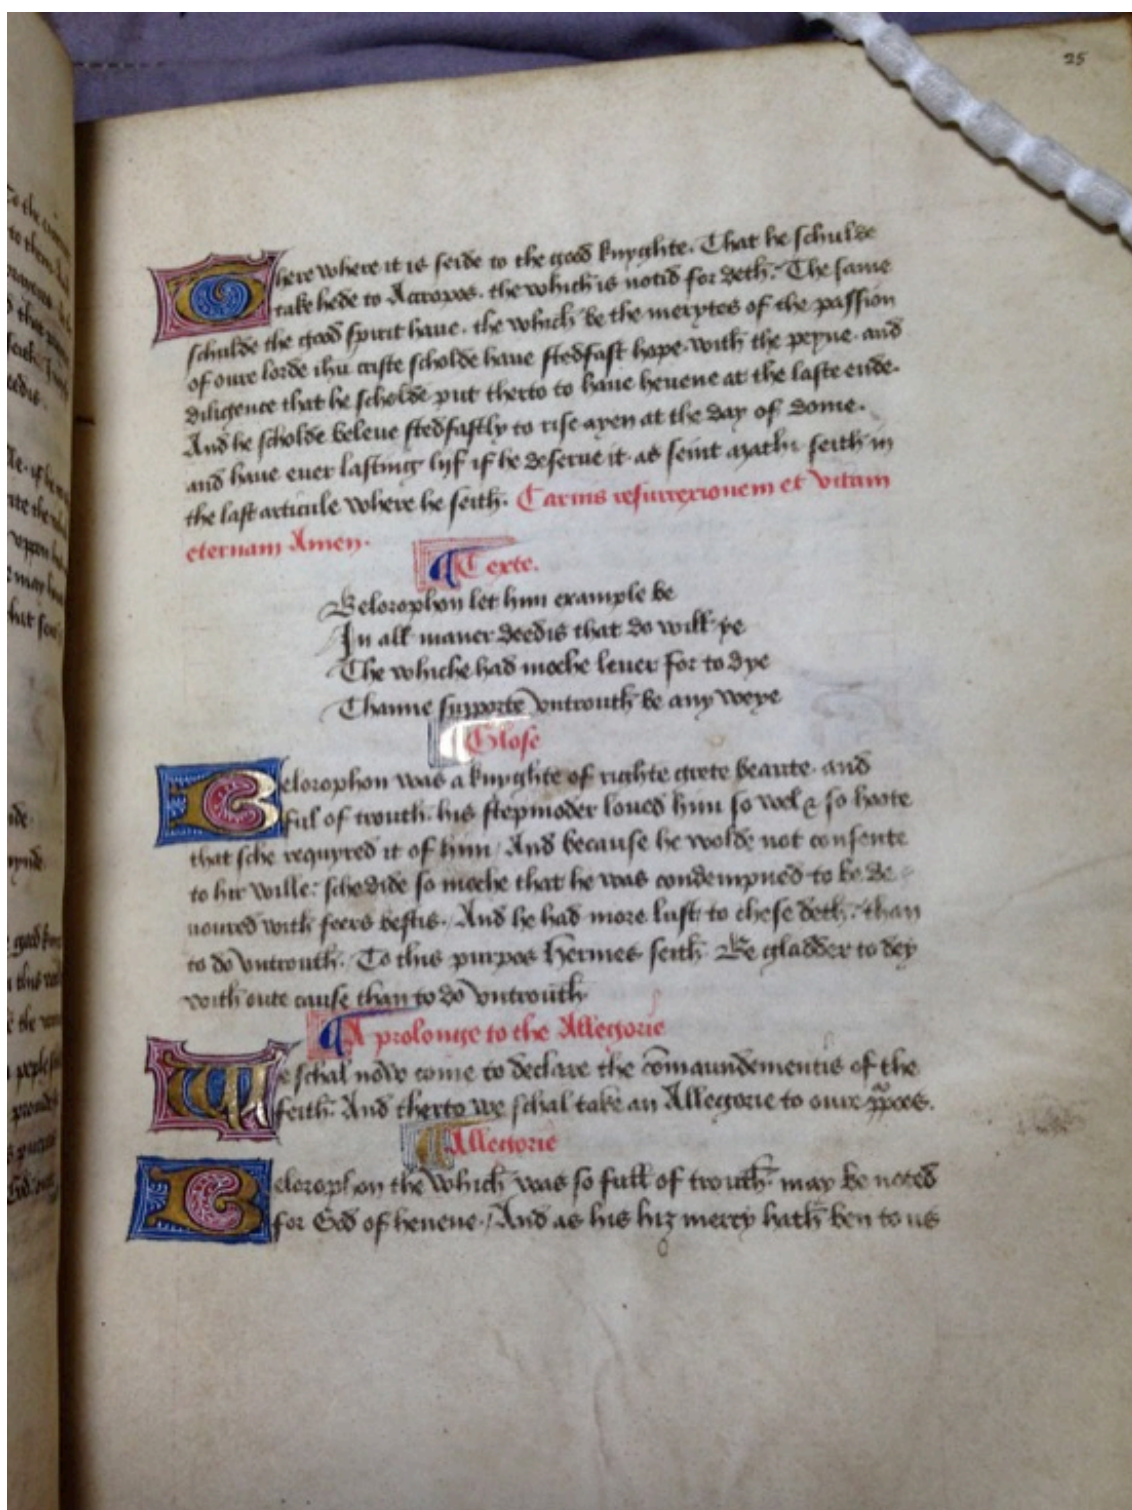 25
There where it is seide to the good knyghte. That he schulde
take hede to Attropos. the which is notid for deth. The same
schulde the good spirit haue. the which be the merytes of the passion
of oure lorde ihu criste scholde haue stedfast hope. with the peyne. and
diligence that he scholde put therto to haue heuene at the laste ende.
And he scholde beleue stedfastly to rise ayen at the day of dome.
and haue euer lasting lyf if he deserue it. as seint Mathi seith in
the last articule where he seith. Carnis resurrexionem et vitam
eternam Amen.
Texte.
Belorophon let him example be
In all maner deedis that do will ye
The whiche had moche leuer for to dye
Thanne supporte vntrouth be any weye
Glose
Belorophon was a knyghte of righte grete beaute. and
ful of trouth. his stepmoder loued him so wel & so hoote
that sche requyred it of him / And because he wolde not consente
to hir wille: sche dide so moche that he was condempned to be de
uoured with feers bestis. And he had more lust to chese deth. than
to do vntrouth. To this purpos Hermes seith. Be gladder to dey
with oute cause than to do vntrouth
A prolonge to the Allegorie
We schal nowe come to declare the comaundementis of the
feith. And therto we schal take an Allegorie to oure ppos.
Allegorie
Belorophon the which was so full of trouth. may be noted
for God of heuene. / And as his hiz mercy hath ben to us